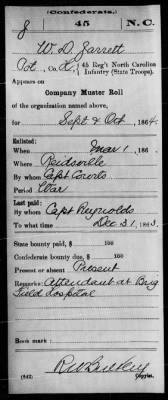 (Confederate.)
J 45 N.C.
W. D. Jarrett
Pvt, Co. K, 45 Reg't North Carolina
Infantry (State Troops).
Appears on
Company Muster Roll
of the organization named above,
for Sept & Oct, 1864.
Enlisted:
When Mar 1, 186 .
Where Reidsville
By whom Capt
Period War
Last paid:
By whom Capt Reynolds
To what time Dec 31, 1863.
State bounty paid, $ 100
Confederate bounty due, $ 100
Present or absent Present
Remarks: Attendant at Brig
Field Hospital
Book mark:
(642) Copyist.